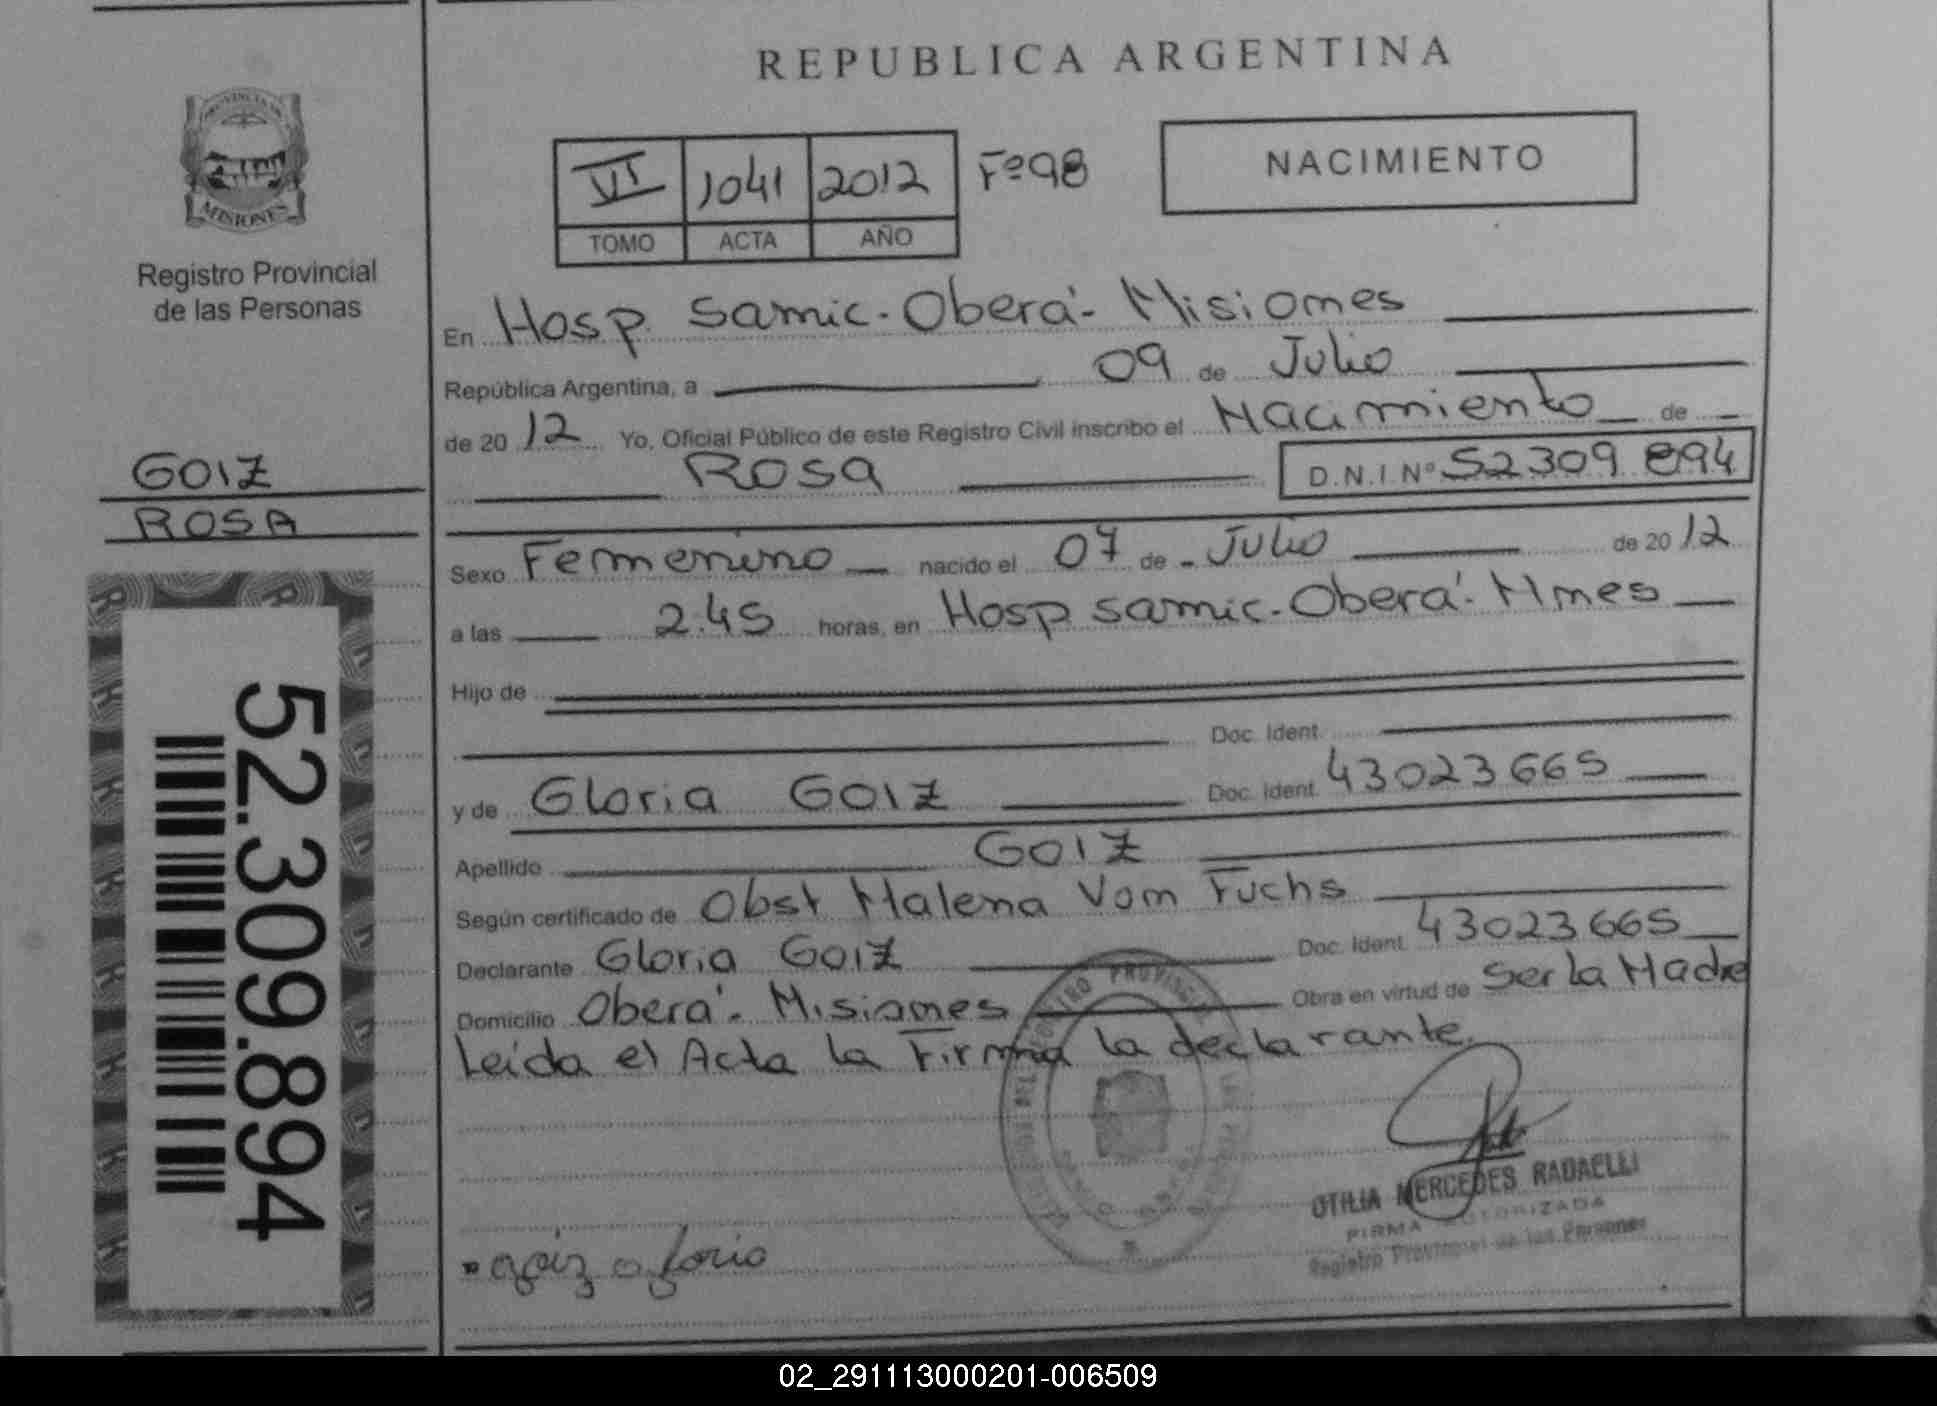 REPUBLICA ARGENTINA
PROVINCIA DE
MISIONES
Registro Provincial
de las Personas
VI 1041 2012 Fº98
TOMO ACTA AÑO
NACIMIENTO
En Hosp. Samic - Oberá - Misiones
República Argentina, a 09 de Julio
de 2012 Yo, Oficial Público de este Registro Civil inscribo el Nacimiento de
Rosa D.N.I. Nº 52309 894
GOIZ
ROSA
Sexo Femenino nacido el 07 de Julio de 2012
a las 2.45 horas, en Hosp samic - Oberá - Mnes
Hijo de
Doc. Ident.
y de Gloria GOIZ Doc. Ident. 43023665
Apellido GOIZ
Según certificado de Obst Malena Von Fuchs
Declarante Gloria Goiz Doc. Ident. 43023665
Domicilio Oberá - Misiones Obra en virtud de Ser la Madre
Leída el Acta la Firma la declarante.
52.309.894
OTILIA MERCEDES RADAELLI
FIRMA AUTORIZADA
Registro Provincial de las Personas
goiz gloria
02_291113000201-006509